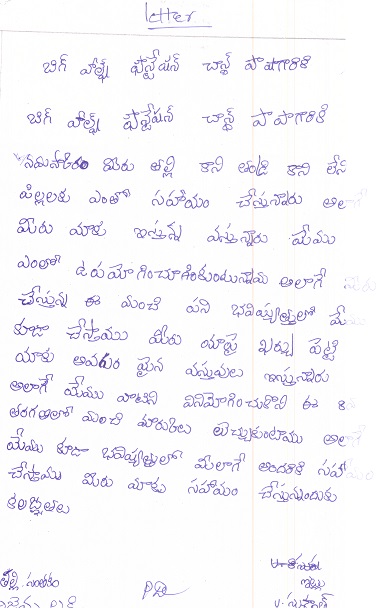 letter
బిగ్ హెల్ప్ ఫౌన్డేషన్ చాన్ద్ పాషాగారికి
బిగ్ హెల్ప్ ఫౌన్డేషన్ చాన్ద్ పాషాగారికి
నమస్కారం మీరు తల్లి కాని తండ్రి కాని లేని
పిల్లలకు ఎంతో సహాయం చేస్తున్నారు అలాగే
మీరు మాకు ఇస్తున్న వస్తున్నారు మేము
ఎంతో ఉపయోగించుకుంటున్నాము అలాగే మీరు
చేస్తున్న ఈ మంచి పని భవిష్యత్తులో మేము
కూడా చేస్తాము మీరు మాపై ఖర్చు పెట్టి
మాకు అవసరం మైన వస్తువులు ఇస్తున్నారు
అలాగే మేము వాటిని వినియోగించుకొని ఈ 8
తరగతిలో మంచి మార్కులు తెచ్చుకుంటాము అలాగే
మేము కూడా భవిష్యత్తులో మీలాగే అందరికి సహాయం
చేస్తాము మీరు మాకు సహాయం చేస్తున్నందుకు
కృతజ్ఞతలు
తల్లి సంతకం
ఇట్లు